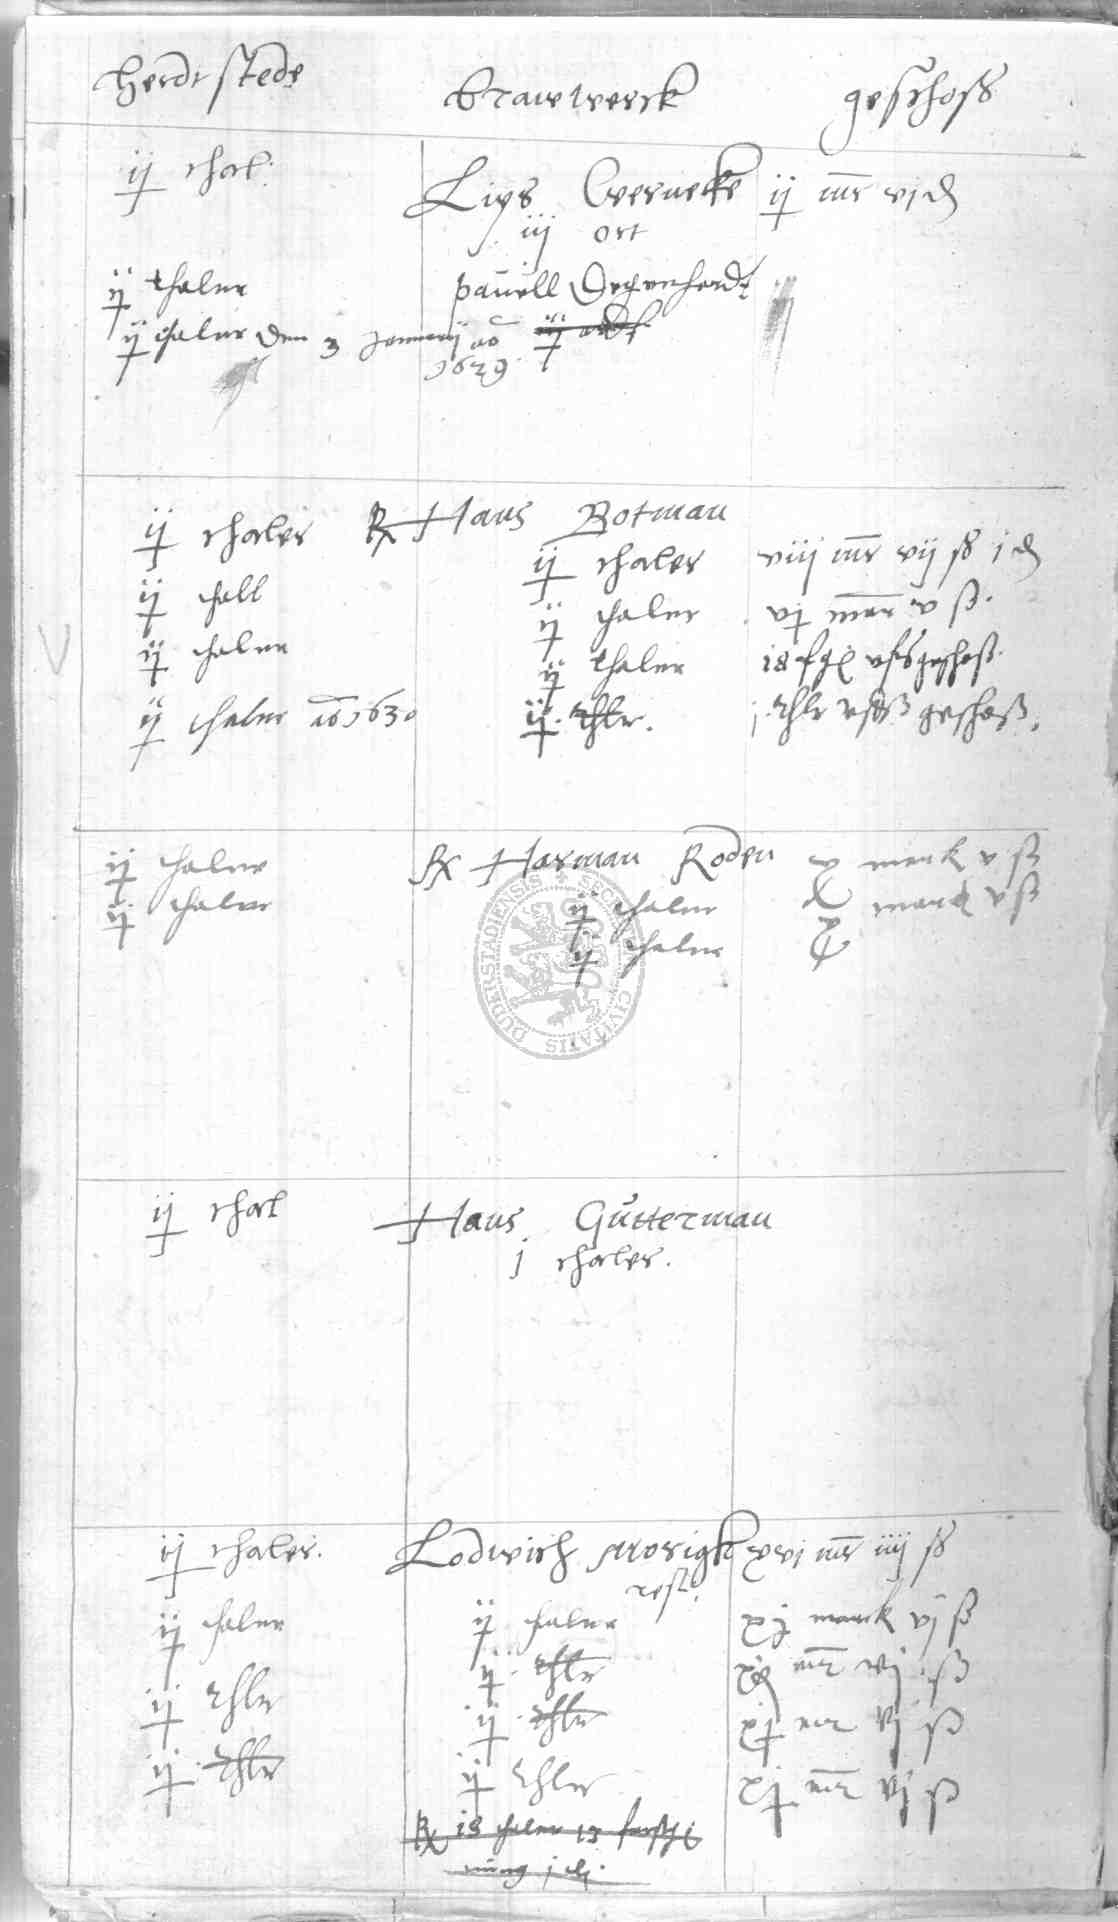 Herdtstede brawwerck geschoß
ij thal: Lips Werneke ij mr vj d
iij ort
ij thaler pauell Degenhardt
ij thaler den 3 Januarij ao
1629
ij thaler Rx Hans Botman
ij thaler viij mr vij ß j d
ij thall ij thaler vj marc v ß
ij thaler ij thaler 18 geschoß
ij thaler ao 1630 ij thlr. j thlr geschoß
ij thaler Rx Harman Roden x mark v ß
ij thaler ij thaler x marck v ß
ij thaler
ij thal Hans Gutterman
j thaler.
ij thaler. Lodwich Morigk xvj mr iiij ß
rest.
ij thaler ij thaler xj marck vj ß
ij thlr mr vj ß
ij thlr ij thlr xj mr vj ß
ij thlr ij thlr xj mr vj ß
Rx 18 thaler 13
DUDERSTADIENSIS SECRETUM CIVITATIS